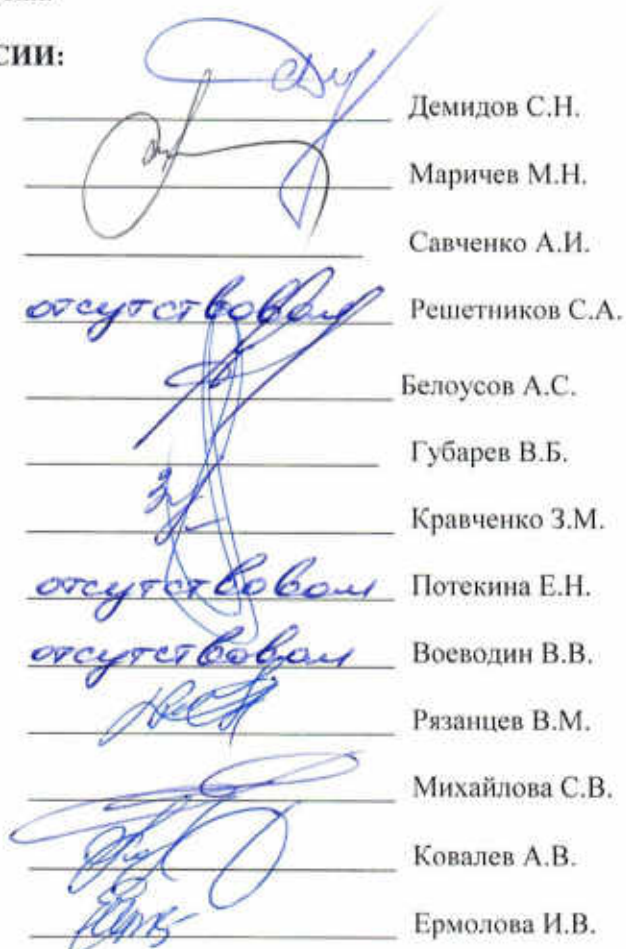 СИИ:
Демидов С.Н.
Маричев М.Н.
Савченко А.И.
отсутствовал Решетников С.А.
Белоусов А.С.
Губарев В.Б.
Кравченко З.М.
отсутствовал Потекина Е.Н.
отсутствовал Воеводин В.В.
Рязанцев В.М.
Михайлова С.В.
Ковалев А.В.
Ермолова И.В.